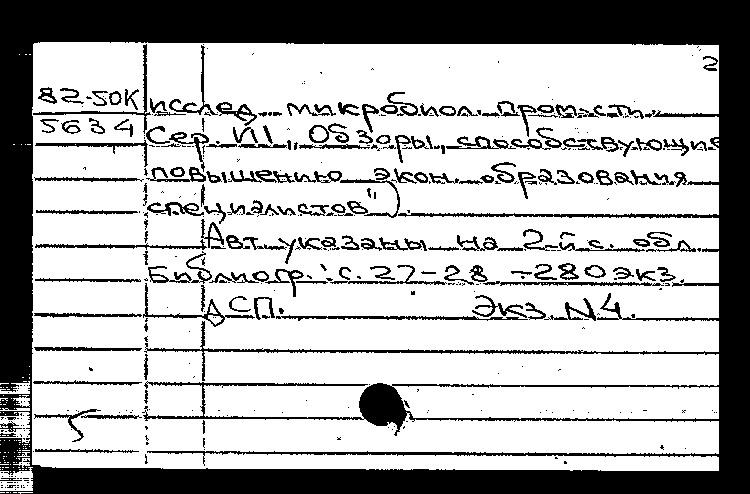 2
82-50К исслед. микробиол. пром-сти.
5634 Сер. VII „Обзоры, способствующие
повышению экон. образования
специалистов").
Авт. указаны на 2-й с. обл.
Библиогр.: с. 27-28 - 280 экз.
ДСП. Экз. N4.
5